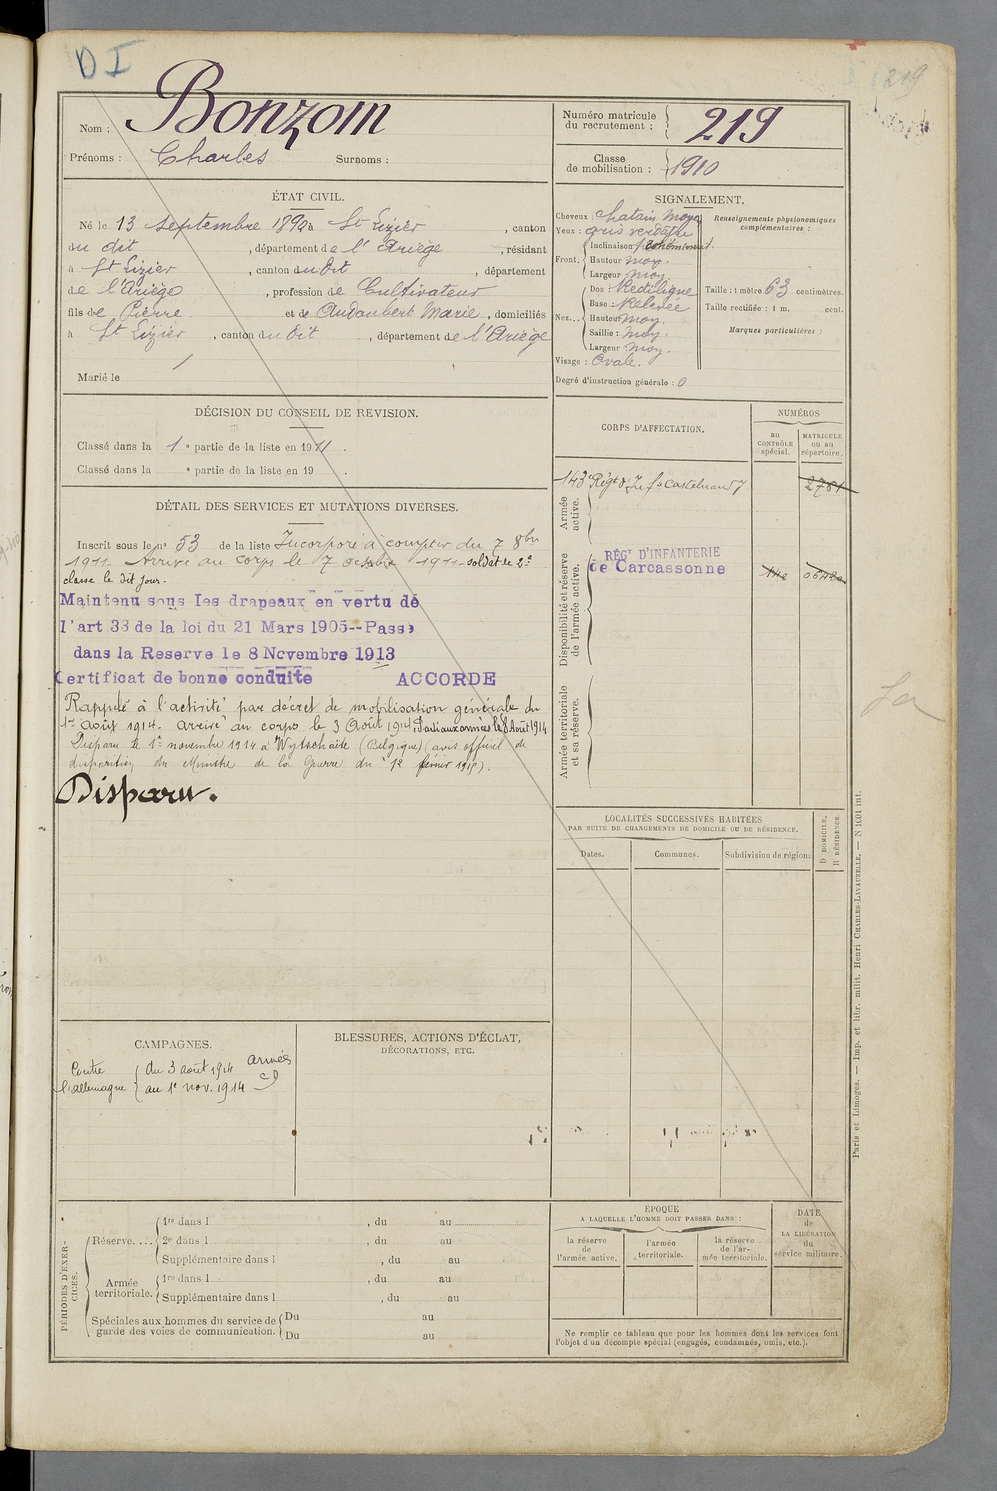 D I
219
Nom : Bonzom
Prénoms : Charles Surnoms :
Numéro matricule du recrutement : 219
Classe de mobilisation : 1910
ÉTAT CIVIL.
Né le 13 septembre 1890 à St Lizier, canton
du dit, département de l'Ariège, résidant
à St Lizier, canton du dit, département
de l'Ariège, profession de Cultivateur
fils de Pierre et de Audoubert Marie, domiciliés
à St Lizier, canton du dit, département de l'Ariège
Marié le
SIGNALEMENT.
Cheveux : chatain moy
Yeux : gris verdatre
Front. Inclinaison
Hauteur moy.
Largeur moy.
Nez... Dos : Rectiligne
Base : Relevée
Hauteur moy.
Saillie : moy.
Largeur moy.
Visage : Ovale.
Degré d'instruction générale : 0
Renseignements physionomiques complémentaires :
Taille : 1 mètre 63 centimètres.
Taille rectifiée : 1 m. cent.
Marques particulières :
DÉCISION DU CONSEIL DE REVISION.
Classé dans la 1e partie de la liste en 1911.
Classé dans la e partie de la liste en 19 .
DÉTAIL DES SERVICES ET MUTATIONS DIVERSES.
Inscrit sous le no 53 de la liste Incorporé à compter du 7 8bre
1911 Arrivé au corps le 7 octobre 1911 soldat de 2e
classe le dit jour.
Maintenu sous les drapeaux en vertu de
l'art 33 de la loi du 21 Mars 1905--Passé
dans la Reserve le 8 Novembre 1913
Certificat de bonne conduite ACCORDE
Rappelé à l'activité par décret de mobilisation générale du
1er août 1914. arrivé au corps le 3 Août 1914, Parti aux armées le 8 Août 1914
Disparu le 1er novembre 1914 à Wytschaëte (Belgique) (avis officiel de
disparition du Ministre de la Guerre du 12 février 1915).
Disparu.
CORPS D'AFFECTATION.
NUMÉROS
au CONTRÔLE spécial.
MATRICULE ou au répertoire.
Armée active.
143e Régt d'Inf. Castelnaud 7
2781
Disponibilité et réserve de l'armée active.
RÉGT D'INFANTERIE
de Carcassonne
Armée territoriale et sa réserve.
LOCALITÉS SUCCESSIVES HABITÉES
PAR SUITE DE CHANGEMENTS DE DOMICILE OU DE RÉSIDENCE.
Dates.
Communes.
Subdivision de région.
D DOMICILE.
R RÉSIDENCE.
CAMPAGNES.
Contre l'allemagne
du 3 août 1914 armées
au 1er nov. 1914
BLESSURES, ACTIONS D'ÉCLAT,
DÉCORATIONS, ETC.
PÉRIODES D'EXERCICES.
Réserve....
1re dans l , du au
2e dans l , du au
Supplémentaire dans l , du au
Armée territoriale.
1re dans l , du au
Supplémentaire dans l , du au
Spéciales aux hommes du service de garde des voies de communication.
Du au
Du au
ÉPOQUE
A LAQUELLE L'HOMME DOIT PASSER DANS :
la réserve de l'armée active.
l'armée territoriale.
la réserve de l'armée territoriale.
DATE de LA LIBÉRATION du service militaire.
Ne remplir ce tableau que pour les hommes dont les services font
l'objet d'un décompte spécial (engagés, condamnés, omis, etc.).
Paris et Limoges. — Imp. et libr. milit. Henri CHARLES-LAVAUZELLE. — N 1001 int.